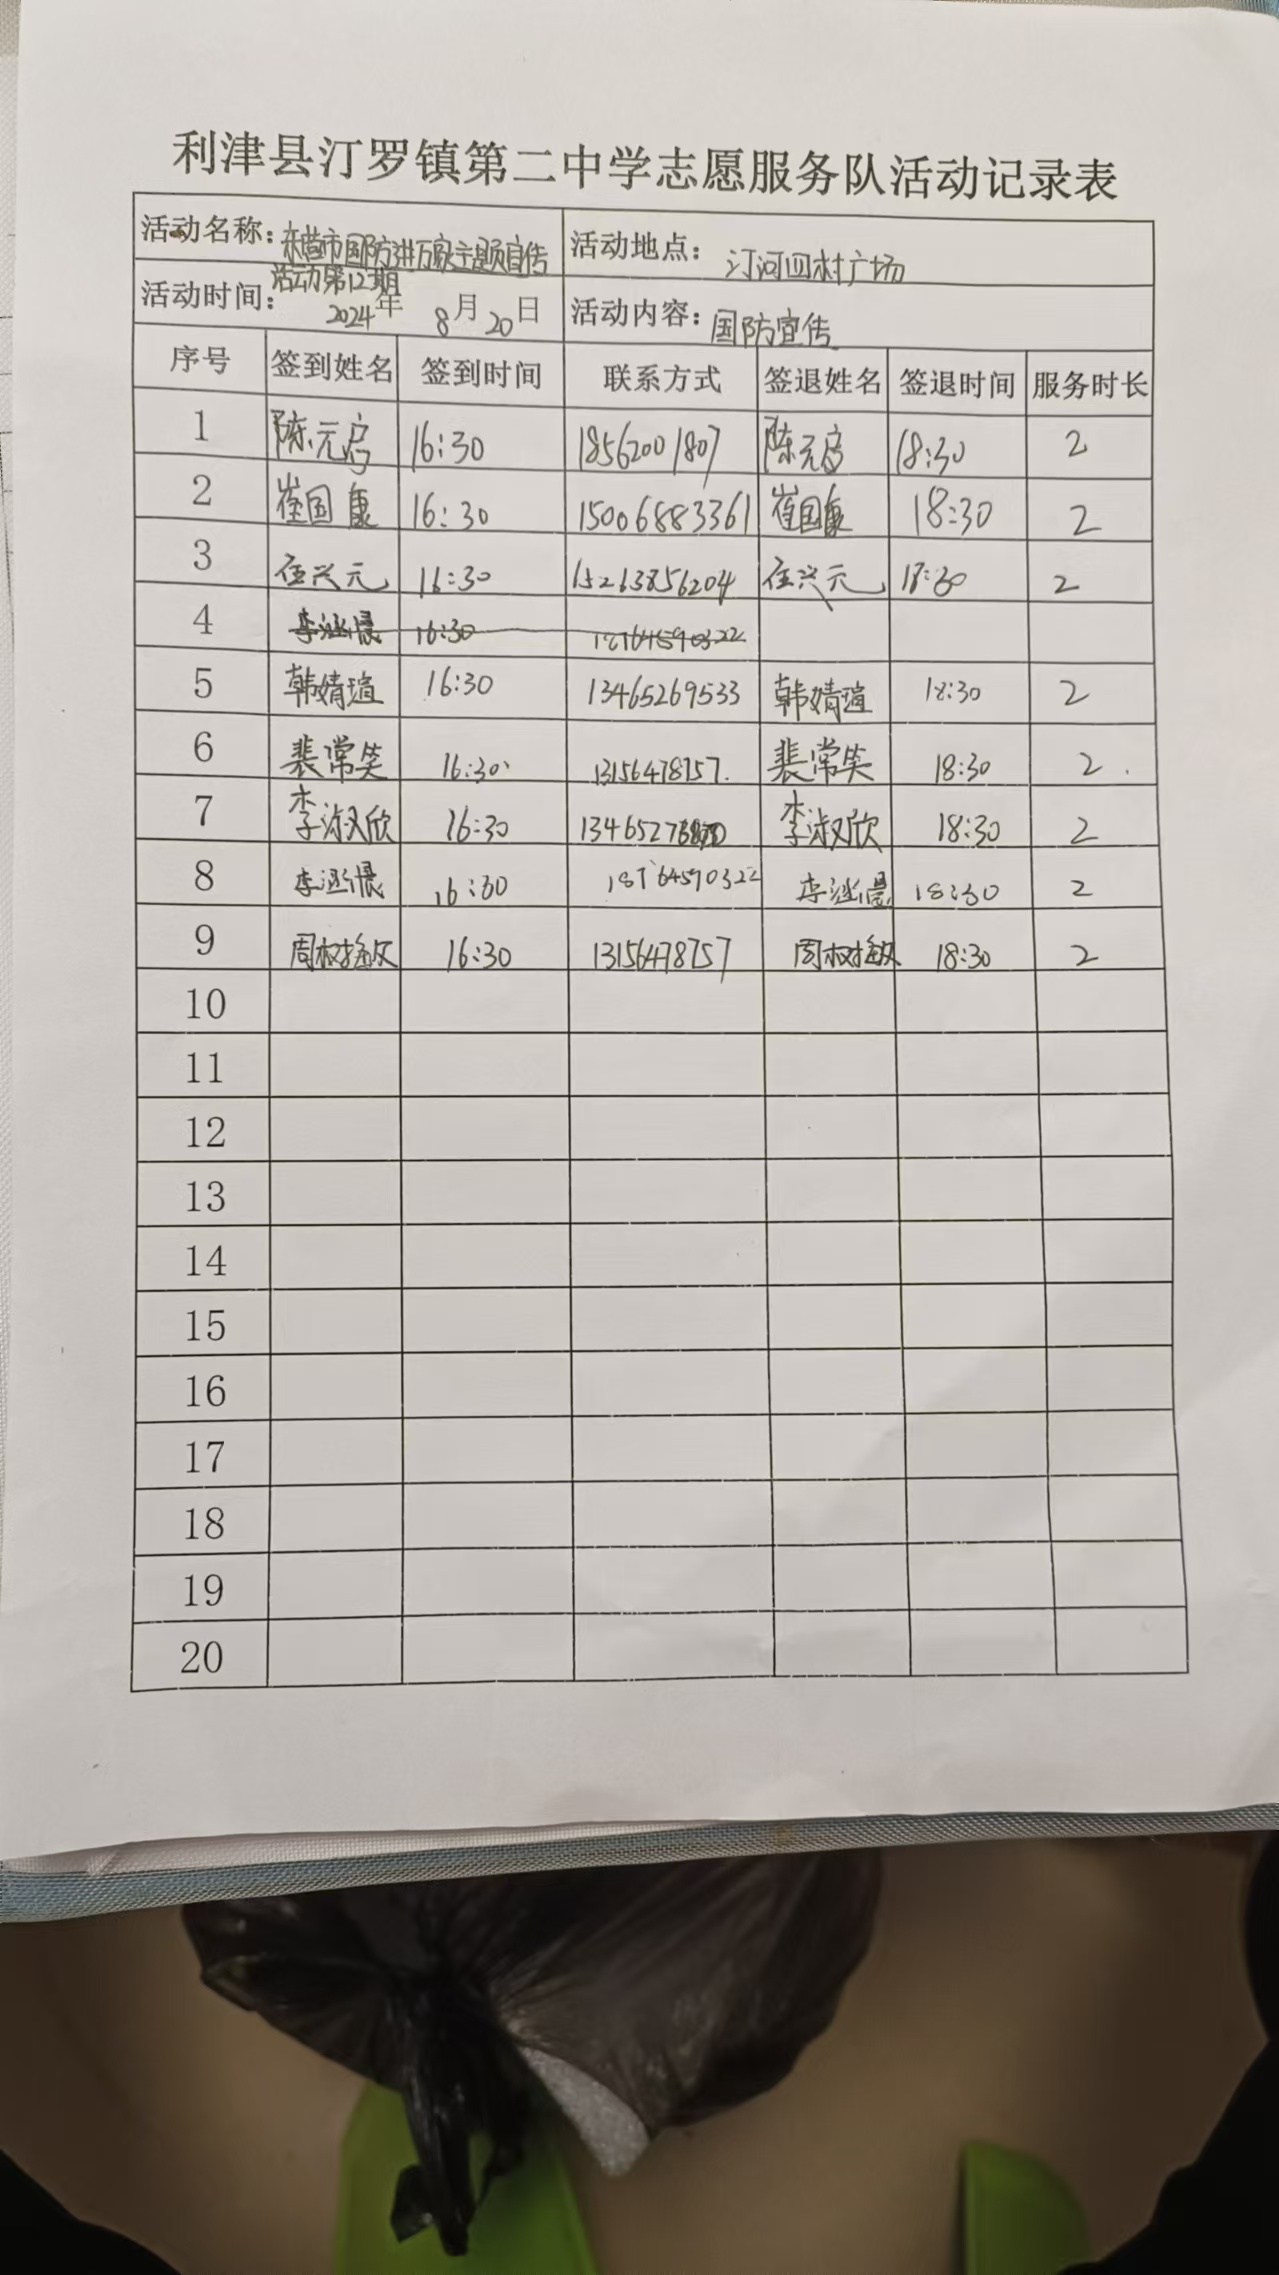 利津县汀罗镇第二中学志愿服务队活动记录表
活动名称：东营市国防进万家主题宣传活动第12期 活动地点：汀河四村广场
活动时间：2024年8月20日 活动内容：国防宣传
序号 签到姓名 签到时间 联系方式 签退姓名 签退时间 服务时长
1 陈元启 16:30 18562001807 陈元启 18:30 2
2 崔国康 16:30 15006883361 崔国康 18:30 2
3 任兴元 16:30 15263856204 任兴元 18:30 2
4 李涵晨 16:30 18764590322
5 韩婧瑄 16:30 13465269533 韩婧瑄 18:30 2
6 裴常笑 16:30 13156478757 裴常笑 18:30 2
7 李淑欣 16:30 李淑欣 18:30 2
8 李涵晨 16:30 18764590322 李涵晨 18:30 2
9 16:30 13156478757 18:30 2
10
11
12
13
14
15
16
17
18
19
20